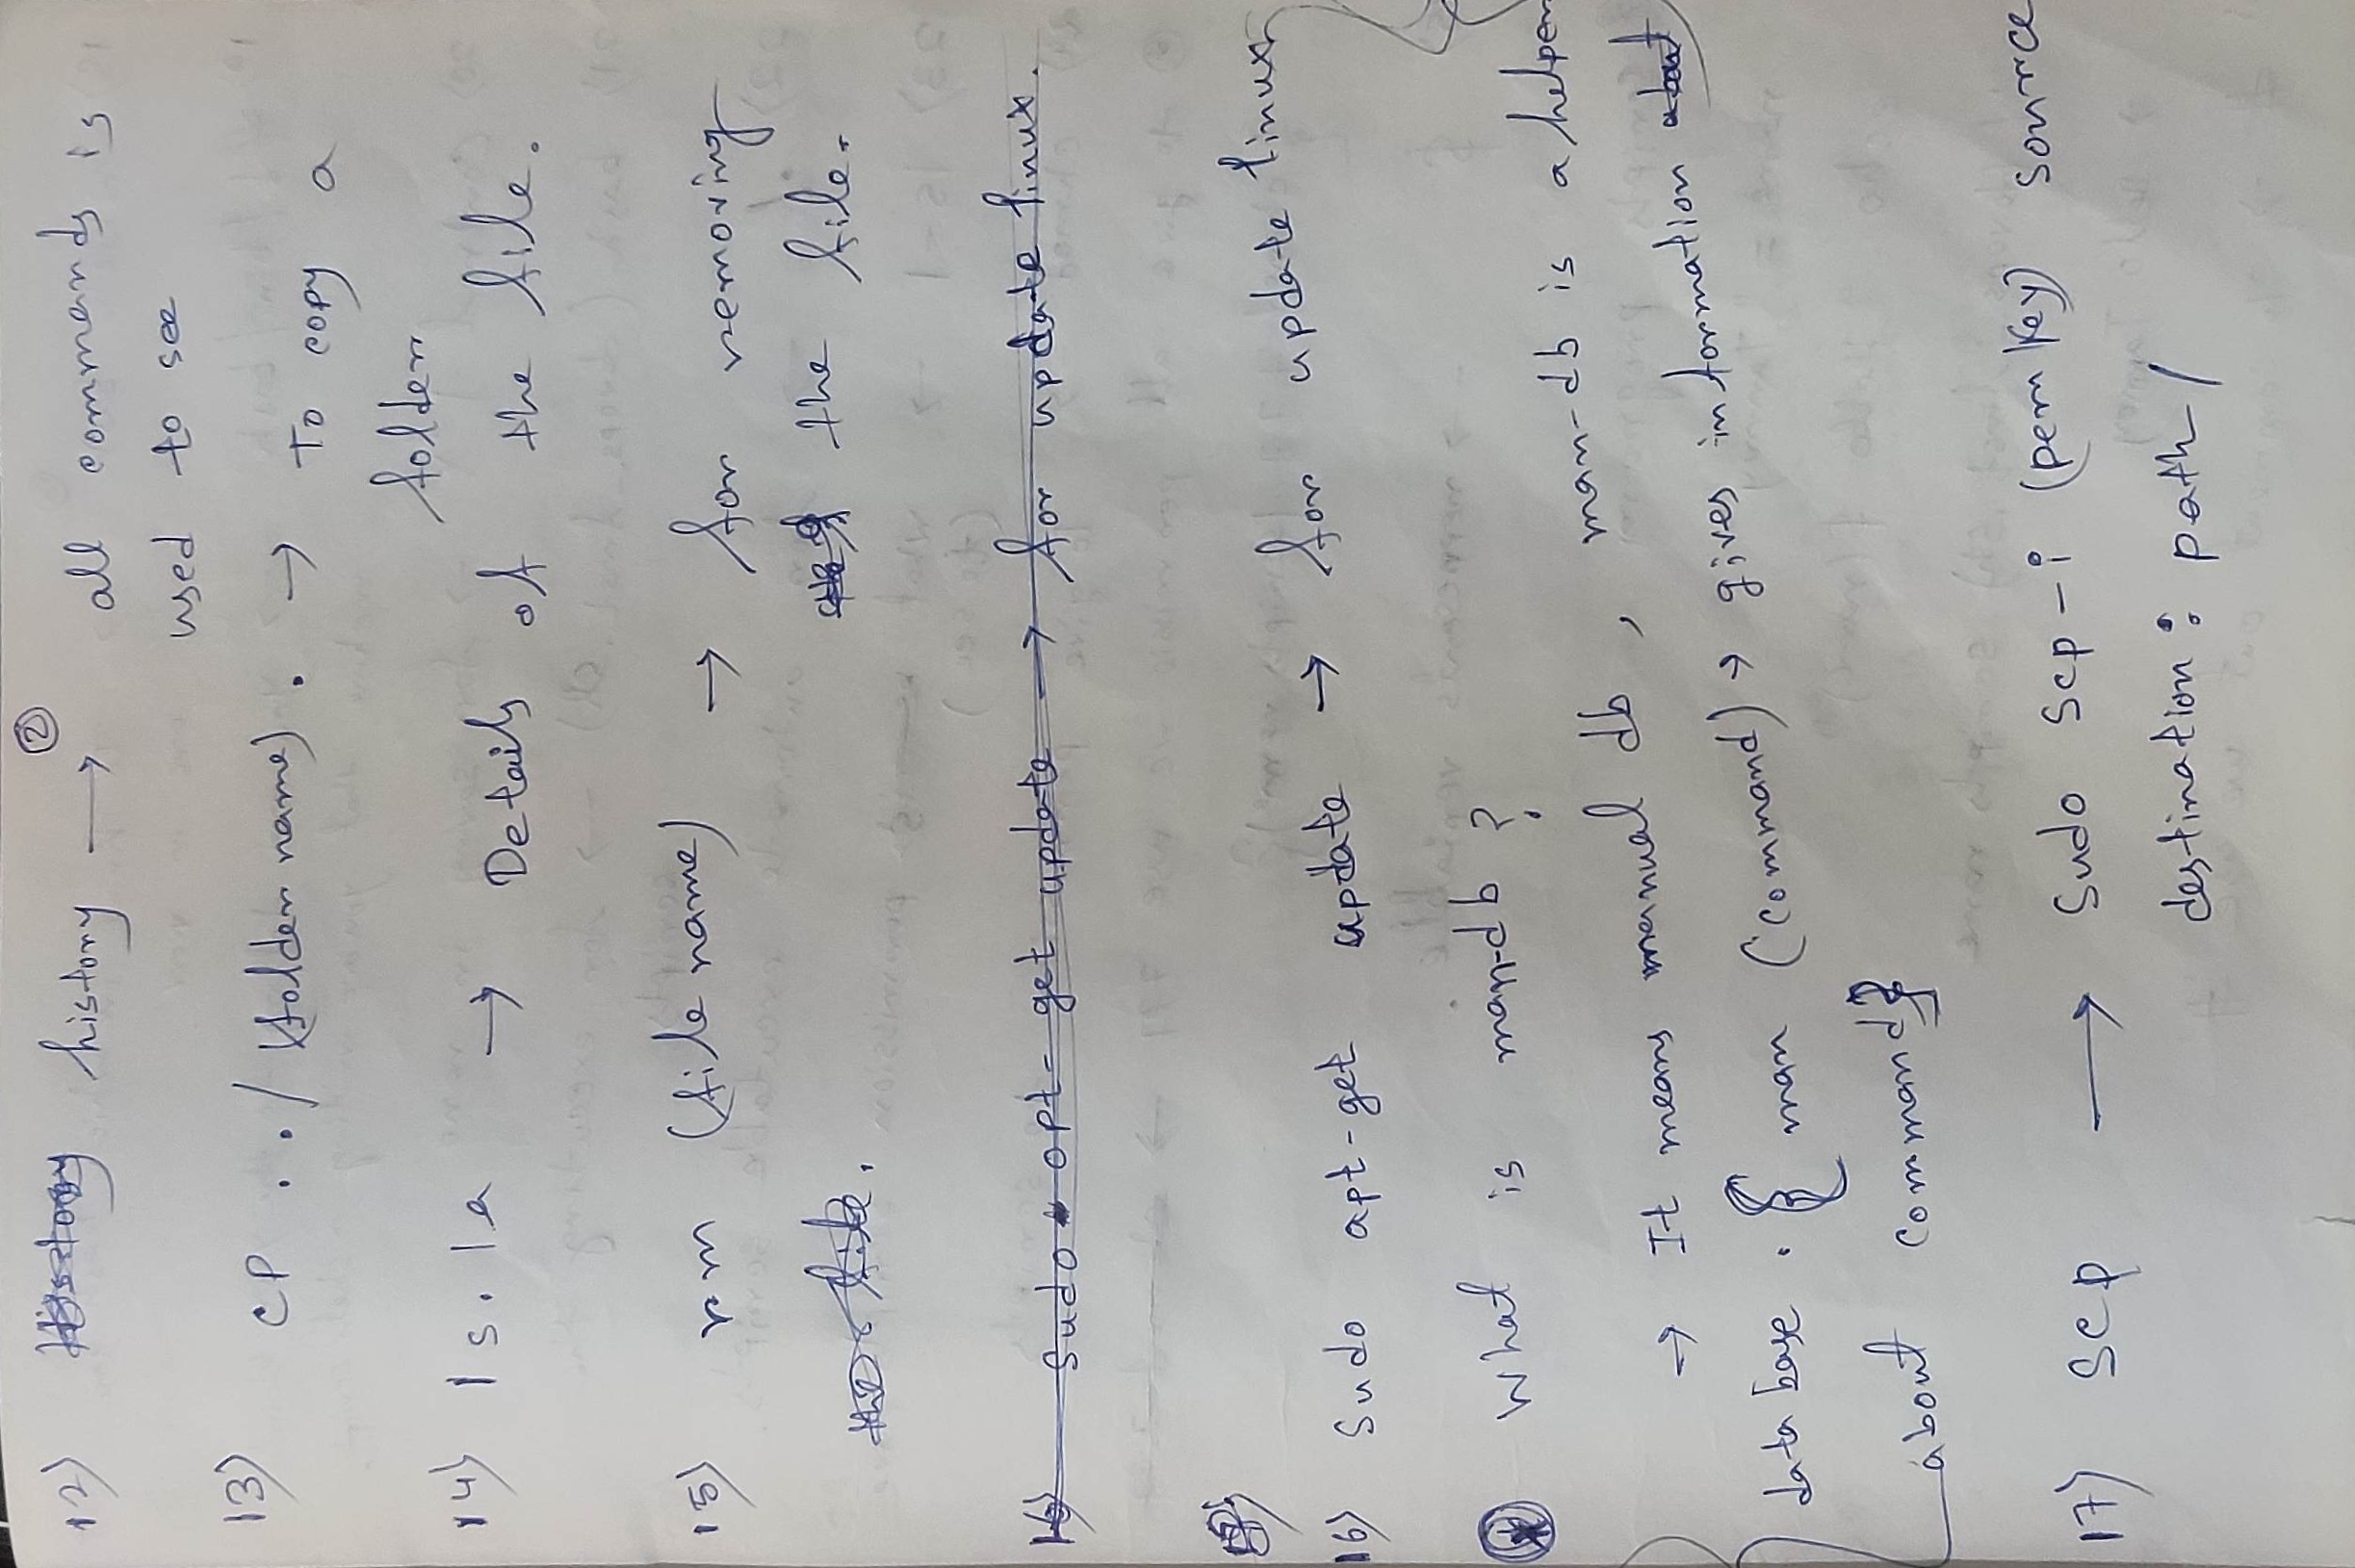 ②
12) history → all commands is
used to see
13) cp ../ (folder name) . → To copy a
folder
14) ls. la → Details of the file.
15) rm (file name) → for removing
the file.
16) Sudo opt-get update → for update linux.
16) Sudo apt-get update → for update linux
What is man-db ?
→ It means manual db , man-db is a helper
data base . { man (command) → gives information about
about command}
17) scp → Sudo scp -i (pem key) source
destination : path /